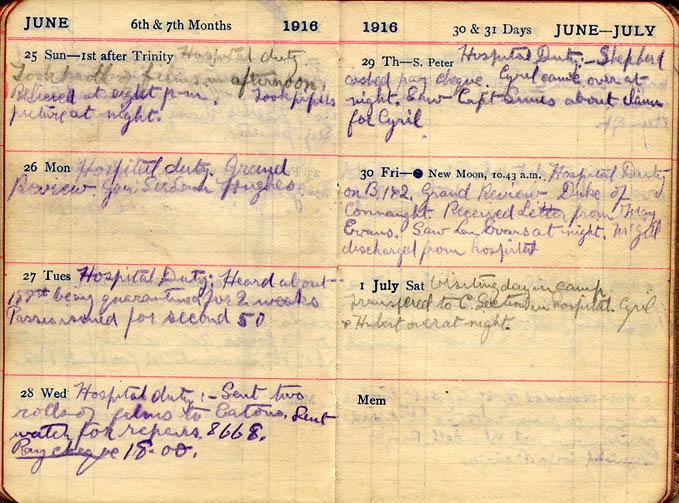 JUNE 6th & 7th Months 1916
25 Sun—1st after Trinity Hospital duty
Took afternoon.
Relieved at eight p.m. Took pipils
picture at night.
26 Mon Hospital duty. Grand
Review. Gen Sir Sam Hughes
27 Tues Hospital Duty: Heard about
being quarantined for 2 weeks
for second 50
28 Wed Hospital duty:- Sent two
rolls of films to Eatons. Sent
watch for repairs. 8668.
Pay cheque 18.00.
1916 30 & 31 Days JUNE—JULY
29 Th—S. Peter Hospital Duty:- Shepherd
cashed pay cheque. Cyril came over at
night. Saw Capt about
for Cyril
30 Fri—● New Moon, 10.43 a.m. Hospital Duty
on B, 1&2. Grand Review Duke of
Connaught. Received Letter from May
Evans. Saw Len at night. McGill
discharged from hospital
1 July Sat Visiting day in camp.
Transfered to C. Section in Hospital. Cyril
& Hubert over at night.
Mem